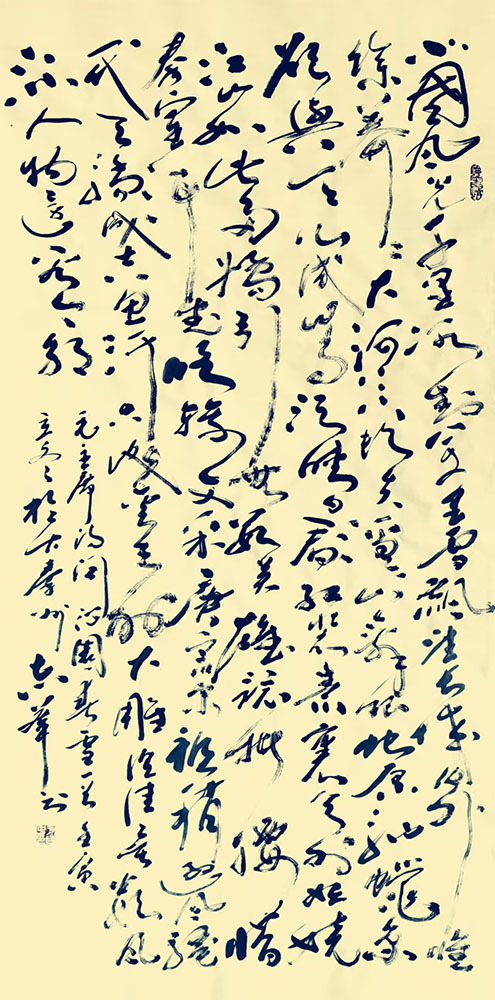 北國风光千里冰封万里雪飘望长城内外惟
馀莽〻大河上下顿失滔〻山舞银蛇原驰蜡象
欲與天公试比高须晴日看红装素裹分外妖娆
江山如此多娇引无数英雄竞折腰惜
秦皇汉武略输文采唐宗宋祖稍逊风骚
一代天骄成吉思汗只识弯弓射大雕俱往矣数风
流人物还看今朝
毛主席词沁園春雪一首壬寅
立冬於古秦州